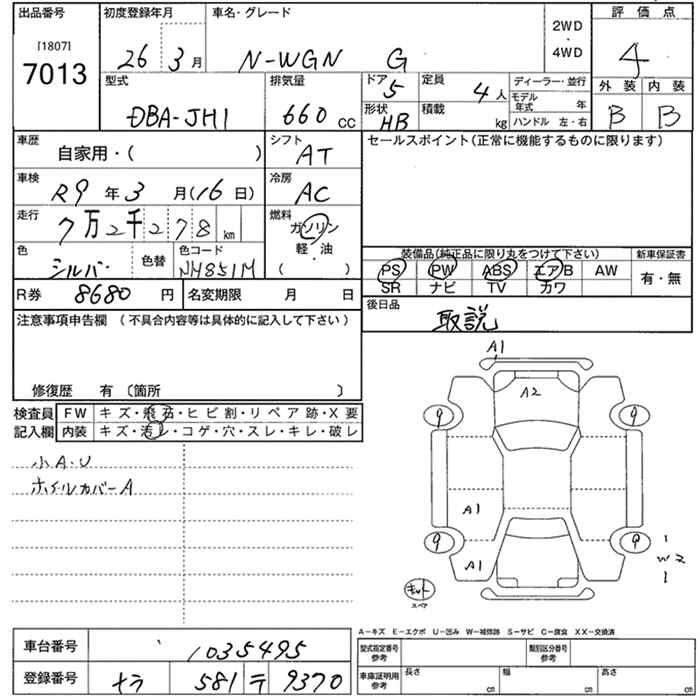 出品番号
[1807]
7013
初度登録年月
26 3月
車名・グレード
N-WGN G
2WD
・
4WD
評価点
4
外装 内装
B B
型式
DBA-JH1
排気量
660 CC
ドア 5
定員 4人
形状 HB
積載 kg
ディーラー・並行
モデル年式 年
ハンドル 左・右
車歴
自家用・( )
シフト
AT
セールスポイント(正常に機能するものに限ります)
車検
R9年3月(16日)
冷房
AC
走行
7万2千278km
燃料
ガソリン
軽・油
( )
色
シルバー
色替
色コード
NH851M
装備品(純正品に限り丸をつけて下さい)
新車保証書
PS PW ABS エアB AW
SR ナビ TV カワ
有・無
R券 8680円
名変期限 月 日
後日品
取説
注意事項申告欄 (不具合内容等は具体的に記入して下さい)
修復歴 有 〔箇所 〕
検査員
記入欄
FW キズ・飛石・ヒビ割・リペア跡・X要
内装 キズ・汚レ・コゲ・穴・スレ・キレ・破レ
小A・U
ホイルカバーA
A1
A2
9 9
A1
9 9
A1
W2
キット
スペア
A−キズ E−エクボ U−凹み W−補修跡 S−サビ C−腐食 XX−交換済
車台番号
1035495
登録番号
ナラ 581 テ 9370
型式指定番号
参考
類別区分番号
参考
車庫証明用
参考
長さ cm
幅 cm
高さ cm